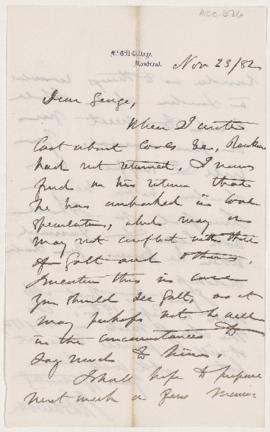 ACC-826
McGill College,
Montreal.
Nov 23/82
Dear George,
When I wrote
last about Coals &c,
had not returned. I now
find on his return that
he has embarked in coal
speculation, which may or
may not conflict with those
of Galt and others.
I mention this in case
you should see Galt, as it
may perhaps not be well
in the circumstances to
say much to him.
I shall hope to prepare
next week a few